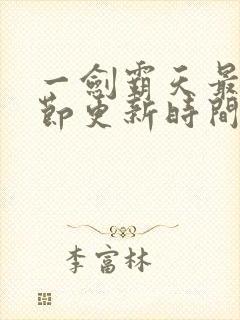 一劍霸天最
節更新時間
李富林